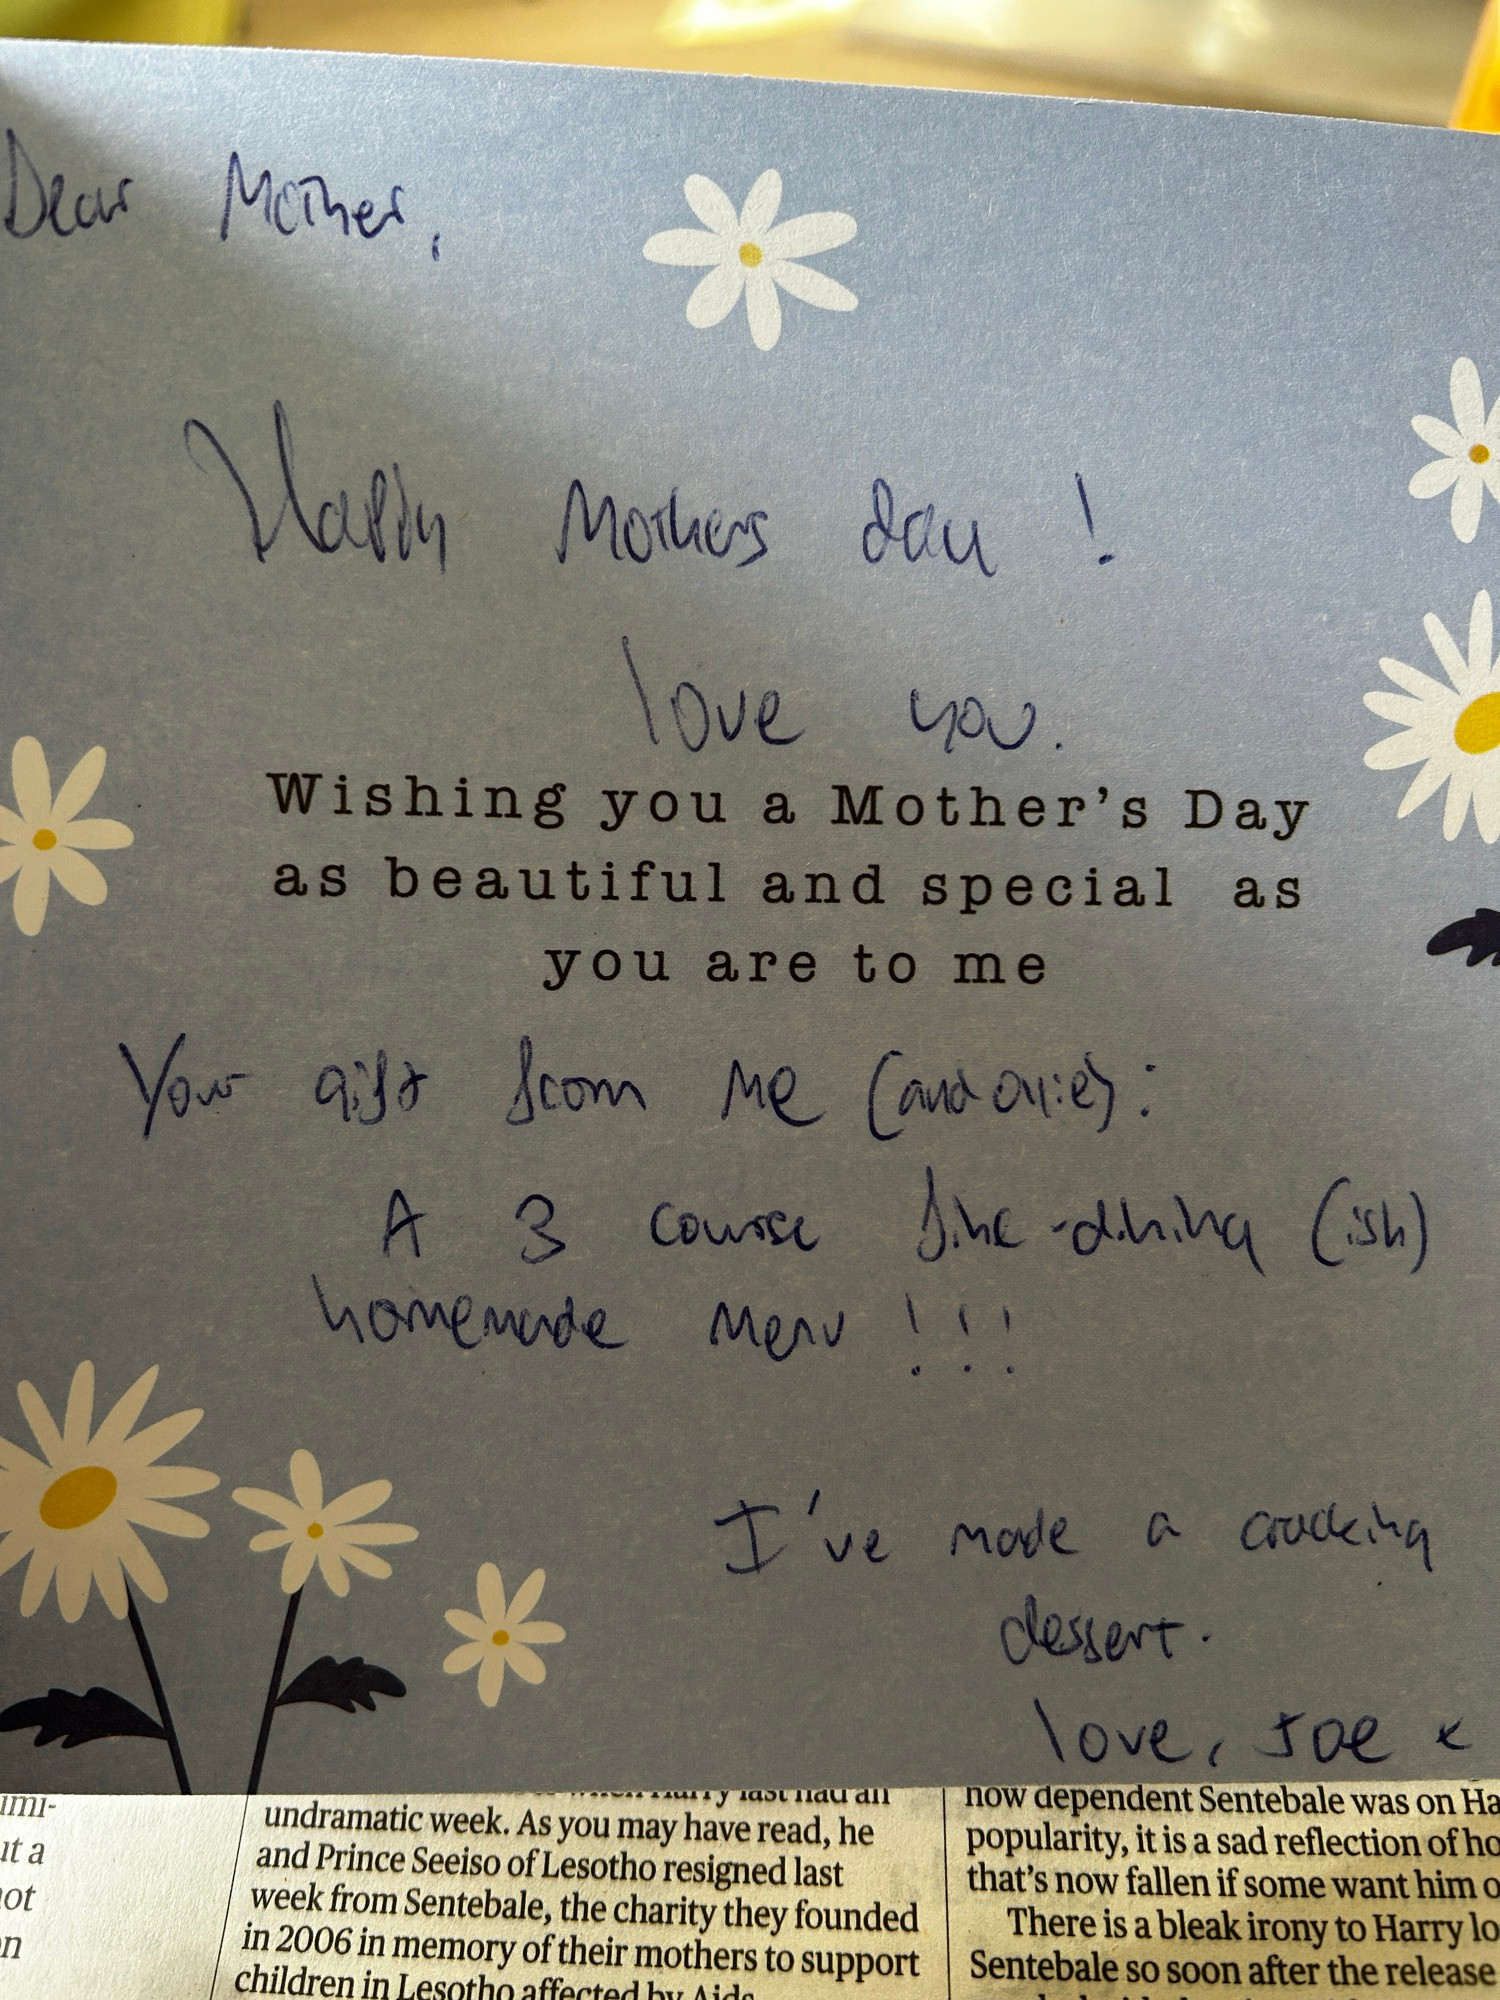 Dear Mother,
Happy Mothers day !
love you.
Wishing you a Mother's Day
as beautiful and special as
you are to me
Your gift from me (and Ollie):
A 3 course fine-dining (ish)
homemade menu !!!
I've made a cracking
dessert.
love, Joe x
umi-
ut a
not
on
when Harry last had an
undramatic week. As you may have read, he
and Prince Seeiso of Lesotho resigned last
week from Sentebale, the charity they founded
in 2006 in memory of their mothers to support
children in Lesotho affected by Aids.
now dependent Sentebale was on Ha
popularity, it is a sad reflection of ho
that's now fallen if some want him o
There is a bleak irony to Harry lo
Sentebale so soon after the release